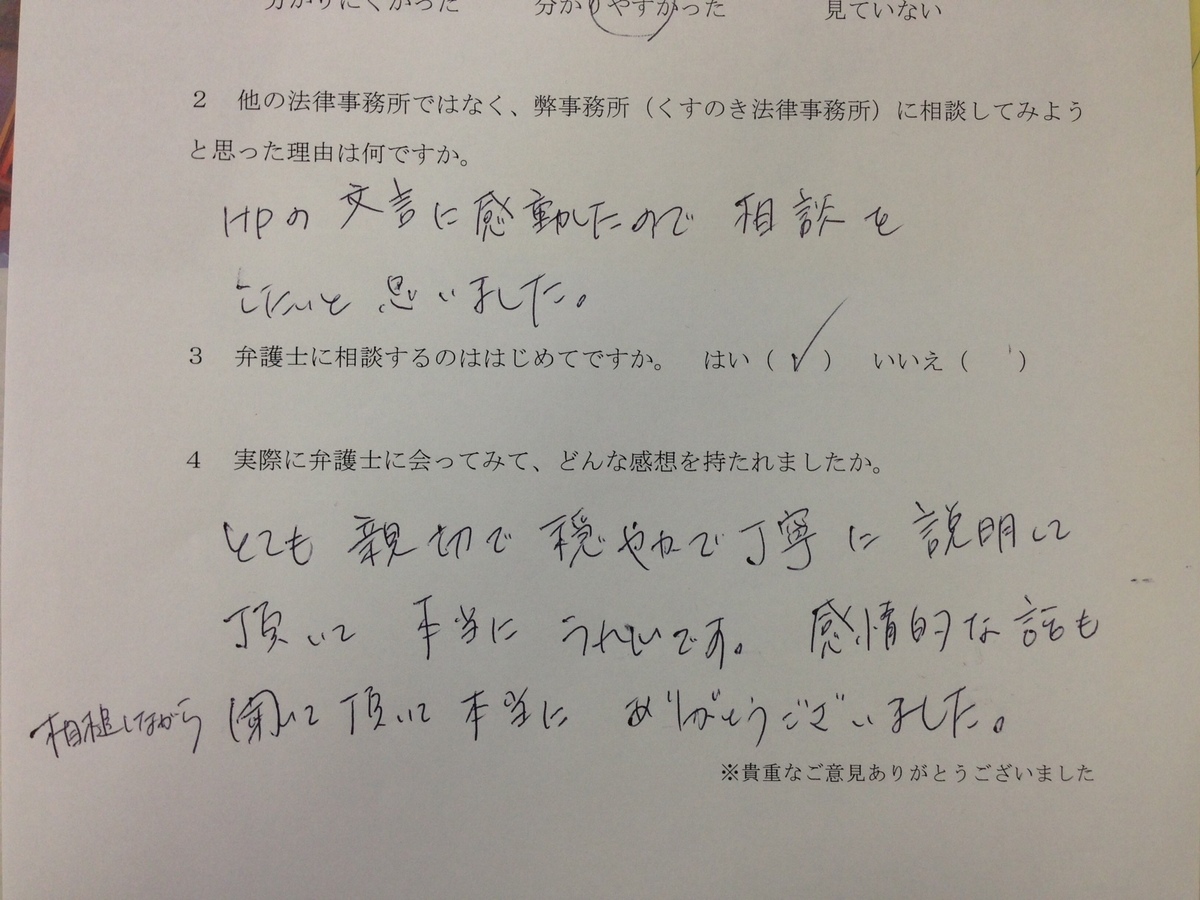 分かりにくかった　分かりやすかった　見ていない
２　他の法律事務所ではなく、弊事務所（くすのき法律事務所）に相談してみよう
と思った理由は何ですか。
HPの文言に感動したので相談を
したいと思いました。
３　弁護士に相談するのははじめてですか。　はい（✓）　いいえ（　）
４　実際に弁護士に会ってみて、どんな感想を持たれましたか。
とても親切で穏やかで丁寧に説明して
頂いて本当にうれしいです。感情的な話も
相槌しながら聞いて頂いて本当にありがとうございました。
※貴重なご意見ありがとうございました